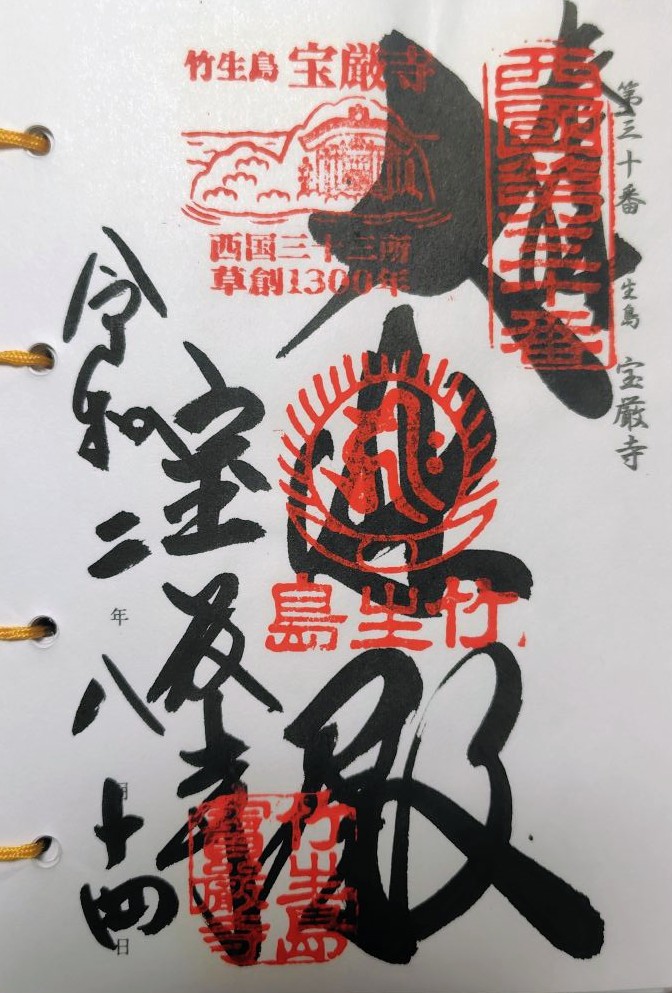 第三十番 生島 宝厳寺
西國第三十番
竹生島 宝厳寺
西国三十三所
草創1300年
大悲殿
竹生島
宝厳寺
竹生島
寶嚴寺
令和二年八月十四日